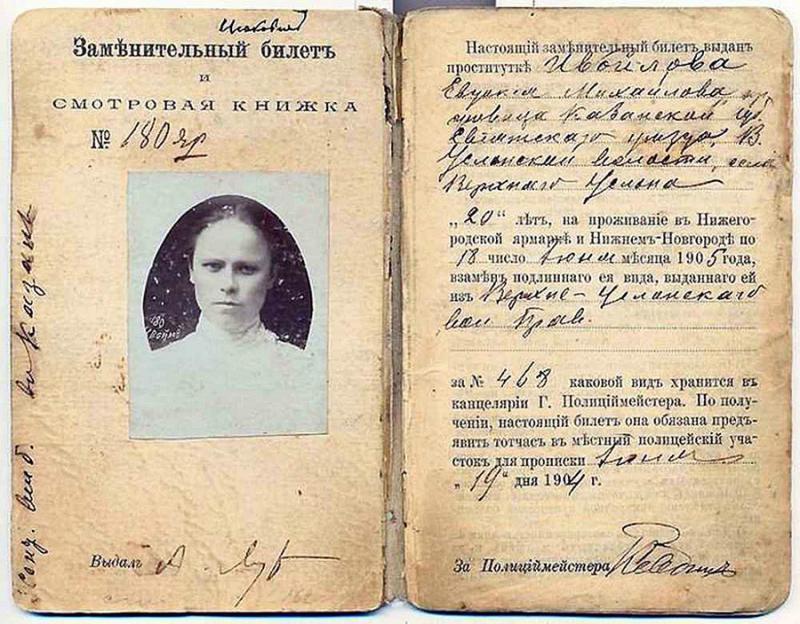 Замѣнительный билетъ
и
СМОТРОВАЯ КНИЖКА
№ 180 яр
Выдалъ
Настоящій замѣнительный билетъ выданъ
проституткѣ Ивойлова
Михайлова
Казанской
уѣзда, В.
Услонской волости, села
Верхняго Услона
„20“ лѣтъ, на проживаніе въ Нижего-
родской ярмаркѣ и Нижнемъ-Новгородѣ по
18 число Іюня мѣсяца 1905 года,
взамѣнъ подлиннаго ея вида, выданнаго ей
изъ Верхне-Услонскаго
вол. Прав.
за № 468 каковой видъ хранится въ
канцеляріи Г. Полиціймейстера. По полу-
ченіи, настоящій билетъ она обязана предъ-
явить тотчасъ въ мѣстный полицейскій уча-
стокъ для прописки Іюня
„19“ дня 1904 г.
За Полиціймейстера